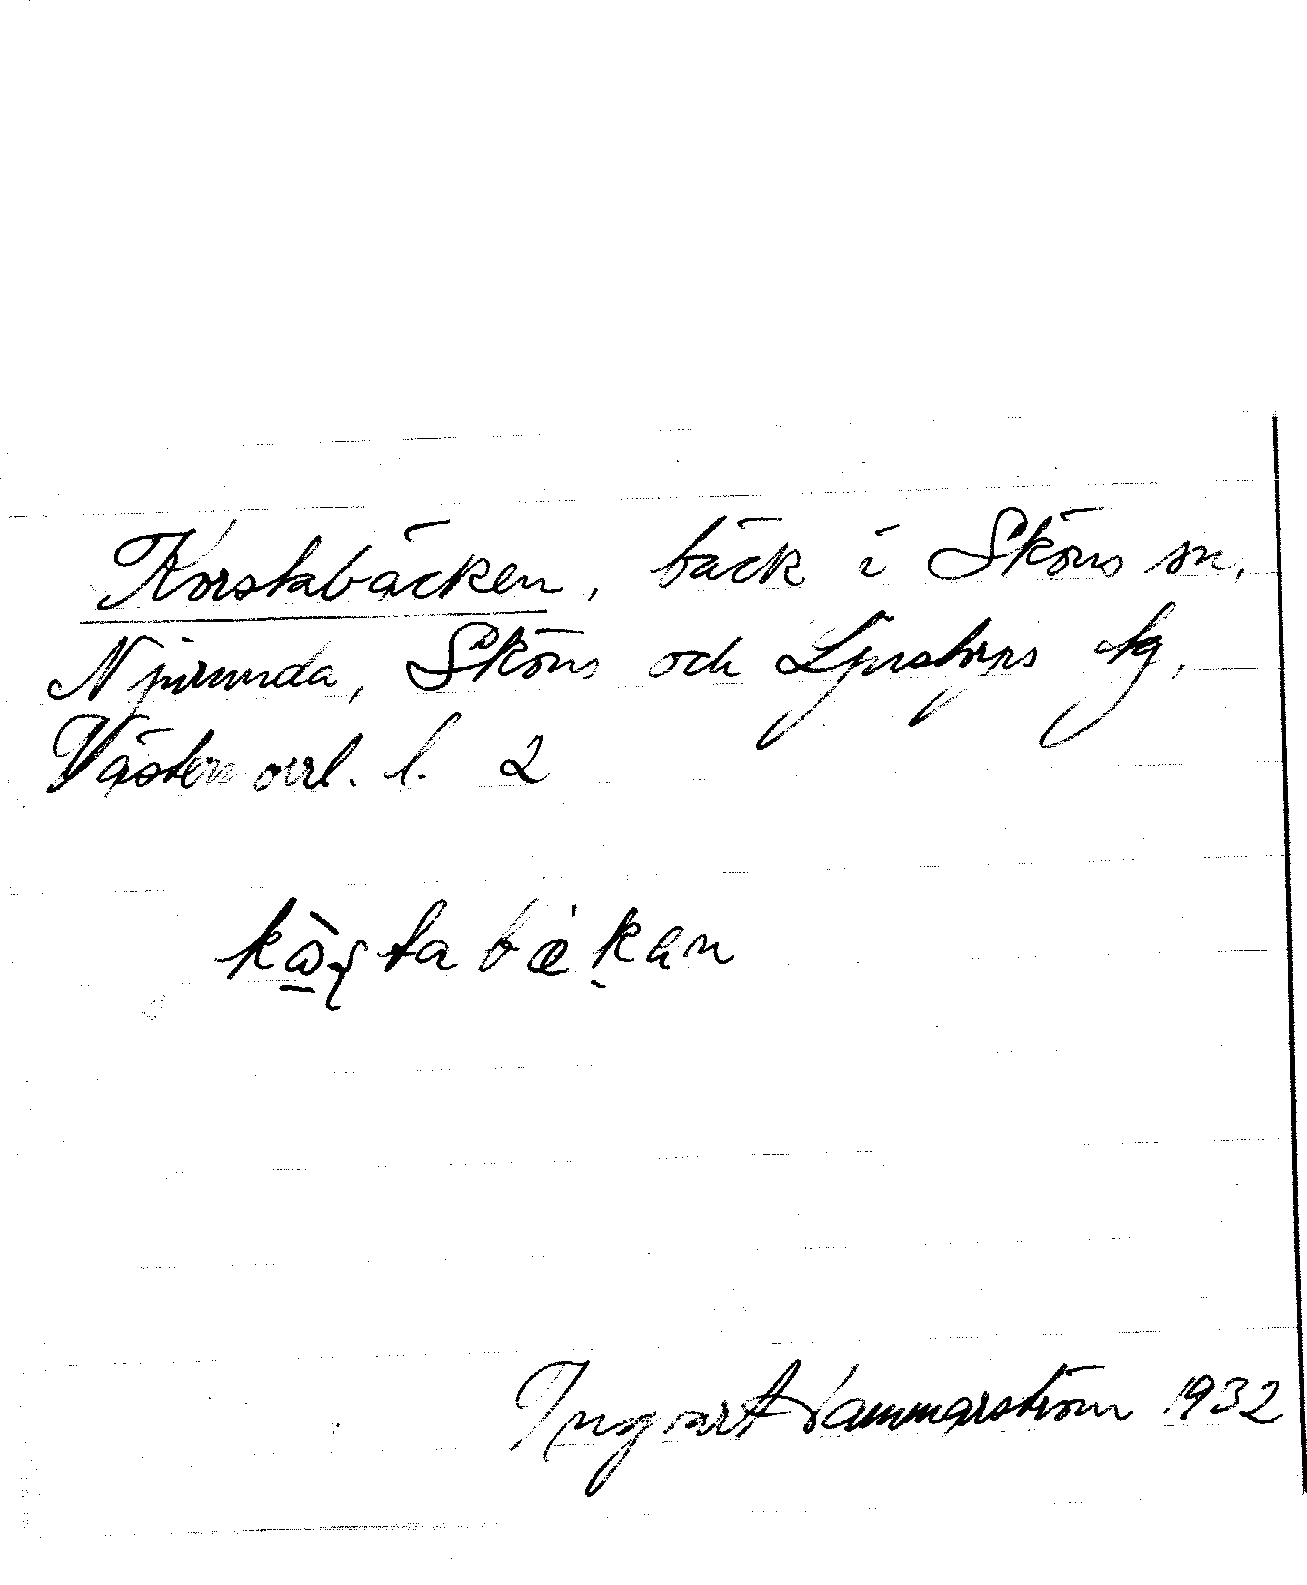 Korstabäcken, bäck i Sköns sn,
Njurunda, Sköns och Ljustorps tg,
Västernorrl. l. 2
Ingvar Hammarström 1932